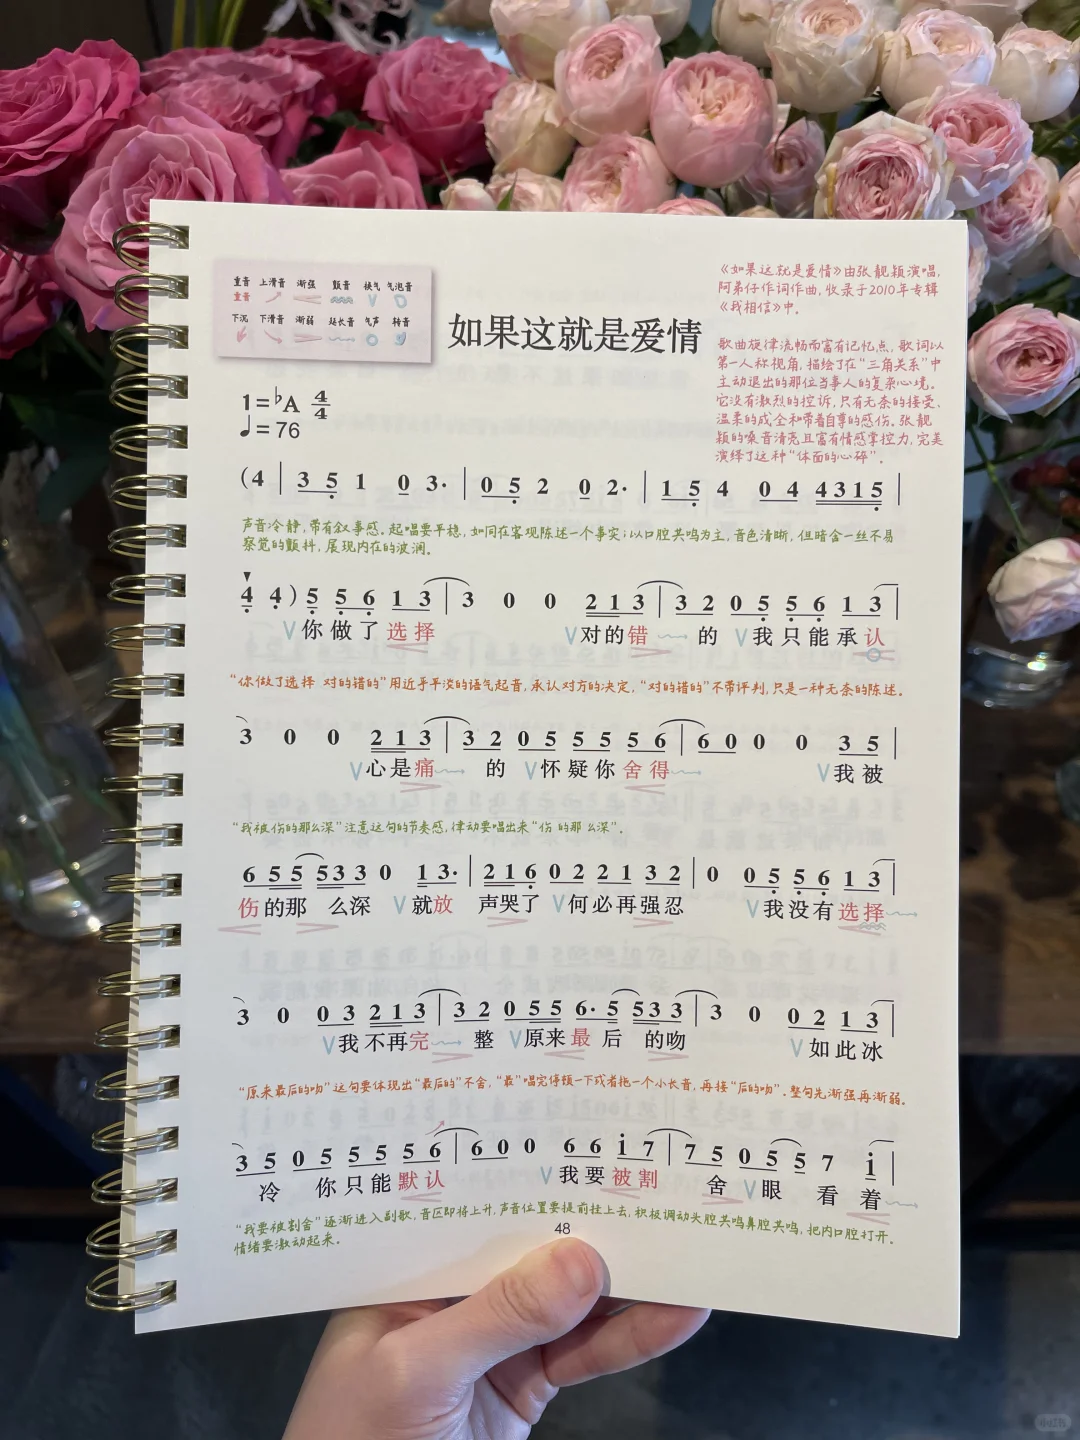 重音 上滑音 渐强 颤音 换气 气泡音
重音
下沉 下滑音 渐弱 延长音 气声 转音
如果这就是爱情
《如果这就是爱情》由张靓颖演唱,
阿弟仔作词作曲,收录于2010年专辑
《我相信》中。
歌曲旋律流畅而富有记忆点,歌词以
第一人称视角,描绘了在“三角关系”中
主动退出的那位当事人的复杂心境。
它没有激烈的控诉,只有无奈的接受、
温柔的成全和带着自尊的感伤。张靓
颖的嗓音清亮且富有情感掌控力,完美
演绎了这种“体面的心碎”。
1=♭A 4/4
♩=76
(4 | 3 5 1 0 3· | 0 5 2 0 2· | 1 5 4 0 4 4 3 1 5 |
声音冷静,带有叙事感。起唱要平稳,如同在客观陈述一个事实;以口腔共鸣为主,音色清晰,但暗含一丝不易
察觉的颤抖,展现内在的波澜。
4 4 ) 5 5 6 1 3 | 3 0 0 2 1 3 | 3 2 0 5 5 6 1 3 |
V你做了选择 V对的错 的 V我只能承认
“你做了选择 对的错的”用近乎平淡的语气起音,承认对方的决定,“对的错的”不带评判,只是一种无奈的陈述。
3 0 0 2 1 3 | 3 2 0 5 5 5 5 6 | 6 0 0 0 3 5 |
V心是痛 的 V怀疑你舍得 V我被
“我被伤的那么深”注意这句的节奏感,律动要唱出来“伤 的那 么深”。
6 5 5 5 3 3 0 1 3· | 2 1 6 0 2 2 1 3 2 | 0 0 5 5 6 1 3 |
伤的那 么深 V就放 声哭了 V何必再强忍 V我没有选择
3 0 0 3 2 1 3 | 3 2 0 5 5 6· 5 5 3 3 | 3 0 0 2 1 3 |
V我不再完 整 V原来最 后 的吻 V如此冰
“原来最后的吻”这句要体现出“最后的”不舍,“最”唱完停顿一下或者拖一个小长音,再接“后的吻”。整句先渐强再渐弱。
3 5 0 5 5 5 5 6 | 6 0 0 6 6 i 7 | 7 5 0 5 5 7 i |
冷 你只能默认 V我要被割 舍 V眼 看 着
“我要被割舍”逐渐进入副歌,音区即将上升,声音位置要提前挂上去,积极调动头腔共鸣鼻腔共鸣,把内口腔打开。
情绪要激动起来。
48
小红书